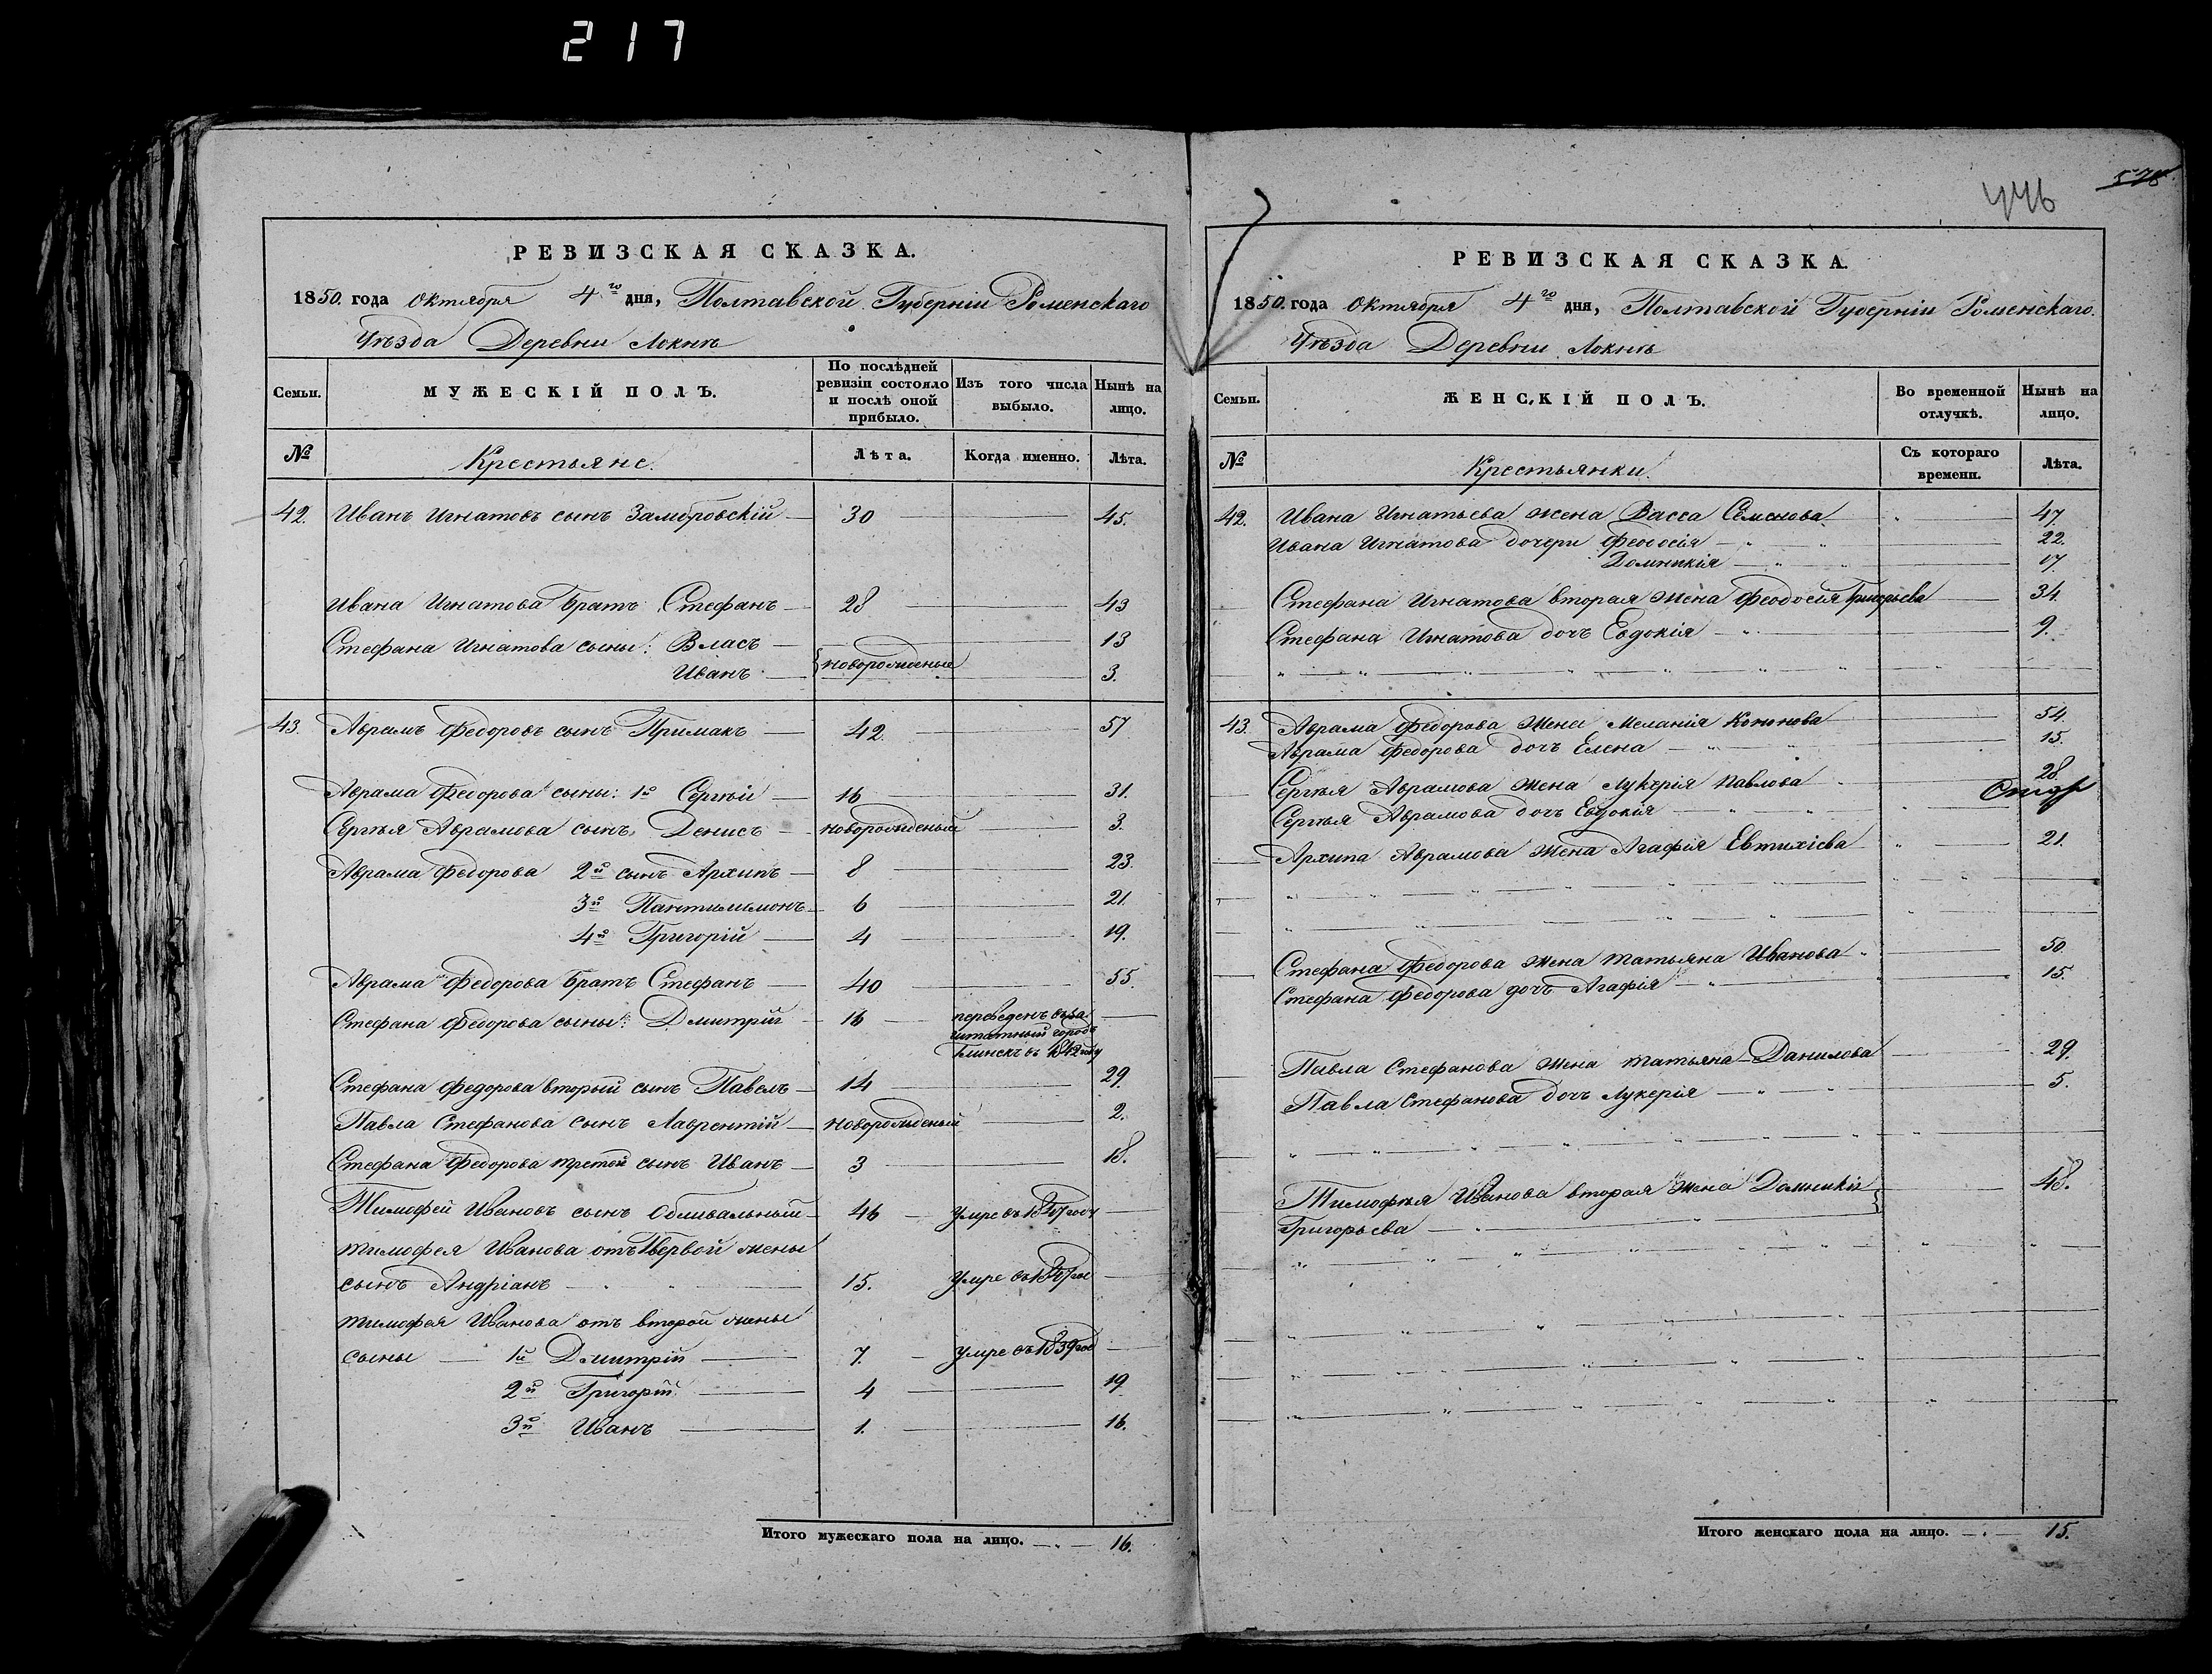 217
446
578
РЕВИЗСКАЯ СКАЗКА.
1850. года Октября 4го дня, Полтавской Губерніи Роменскаго
Уѣзда Деревни Локнѣ
Семьи. МУЖЕСКІЙ ПОЛЪ. По послѣдней ревизіи состояло и послѣ оной прибыло. Изъ того числа выбыло. Нынѣ на лицо.
№ Крестьяне. Лѣта. Когда именно. Лѣта.
42. Иванъ Игнатовъ сынъ 30 45.
Ивана Игнатова братъ Стефанъ 28 43
Стефана Игнатова сыны: Власъ 13
Иванъ новорожденые 3.
43. Аврамъ Федоровъ сынъ Примакъ 42. 57
Аврама Федорова сыны: 1й Сергѣй 16 31.
Сергѣя Аврамова сынъ Денисъ новорожденый 3.
Аврама Федорова 2й сынъ Архипъ 8 23.
3й Пантилимонъ 6 21.
4й Григорій 4 19.
Аврама Федорова братъ Стефанъ 40 55.
Стефана Федорова сыны: Дмитрій 16 переведенъ въ за
штатный городъ
Глинскъ въ 1842 году
Стефана Федорова вторый сынъ Павелъ 14 29.
Павла Стефанова сынъ Лаврентій новорожденый 2.
Стефана Федорова третій сынъ Иванъ 3 18.
Тимофей Ивановъ сынъ Обливальный 46 умре въ 1847 году
Тимофея Иванова отъ первой жены
сынъ Андріанъ 15. умре въ 1847 год
Тимофея Иванова отъ второй жены
сыны 1й Дмитрій 7. умре въ 1839 год
2й Григорій 4 19
3й Иванъ 1. 16.
Итого мужескаго пола на лицо. 16.
РЕВИЗСКАЯ СКАЗКА.
1850. года Октября 4го дня, Полтавской Губерніи Роменскаго.
Уѣзда Деревни Локнѣ
Семьи. ЖЕНСКІЙ ПОЛЪ. Во временной отлучкѣ. Нынѣ на лицо.
№ Крестьянки. Съ котораго времени. Лѣта.
42. Ивана Игнатьева жена Васса Семенова 47.
Ивана Игнатова дочери Феодосія 22.
Домникія 17
Стефана Игнатова вторая жена Феодосія Григорьева 34.
Стефана Игнатова дочь Евдокія 9.
43. Аврама Федорова жена Меланія Кононова 54.
Аврама Федорова дочь Елена 15.
Сергѣя Аврамова жена Лукерія Павлова 28.
Сергѣя Аврамова дочь Евдокія
Архипа Аврамова жена Агафія Евтихіева 21.
Стефана Федорова жена Татьяна Иванова 50.
Стефана Федорова дочь Агафія 15.
Павла Стефанова жена Татьяна Данилова 29.
Павла Стефанова дочь Лукерія 5.
Тимофѣя Иванова вторая жена Домникія 48.
Григорьева
Итого женскаго пола на лицо. 15.